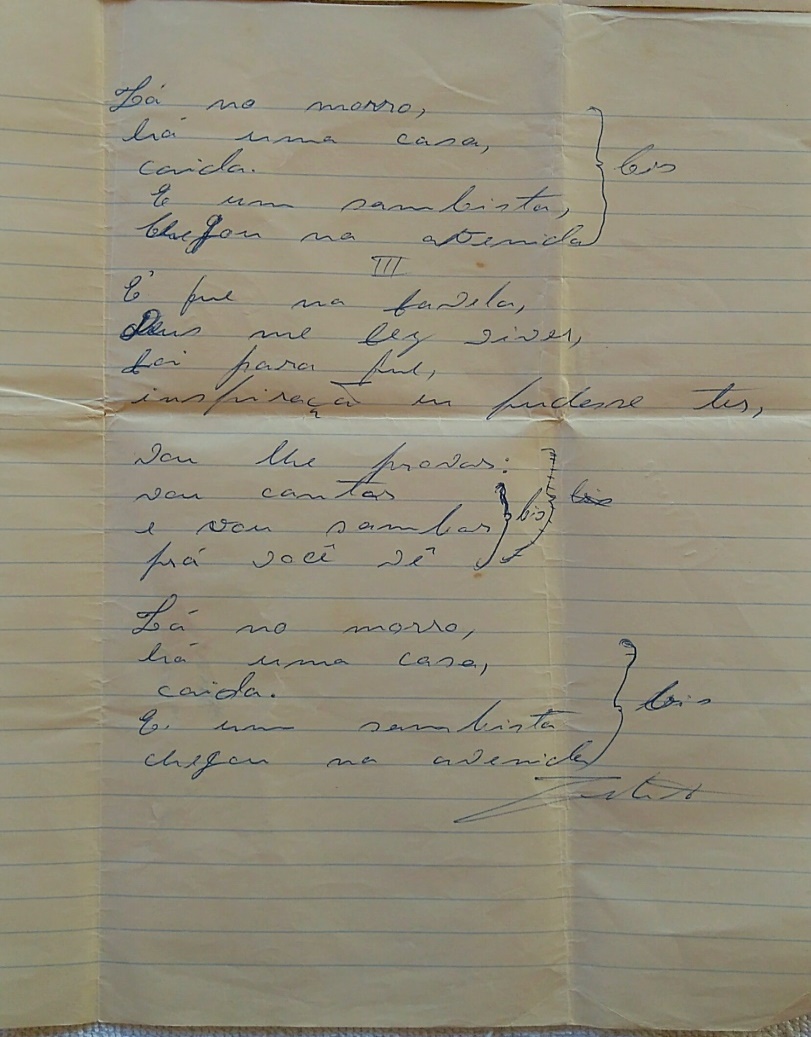 Lá no morro,
há uma casa,
caida.
E um sambista,
chegou na avenida
bis
III
É que na favela,
Deus me fez viver,
foi para que,
inspiração eu pudesse ter,
vou lhe provar:
vou cantar
e vou sambar
prá você vê
bis
bis
Lá no morro,
há uma casa,
caida.
E um sambista
chegou na avenida
bis